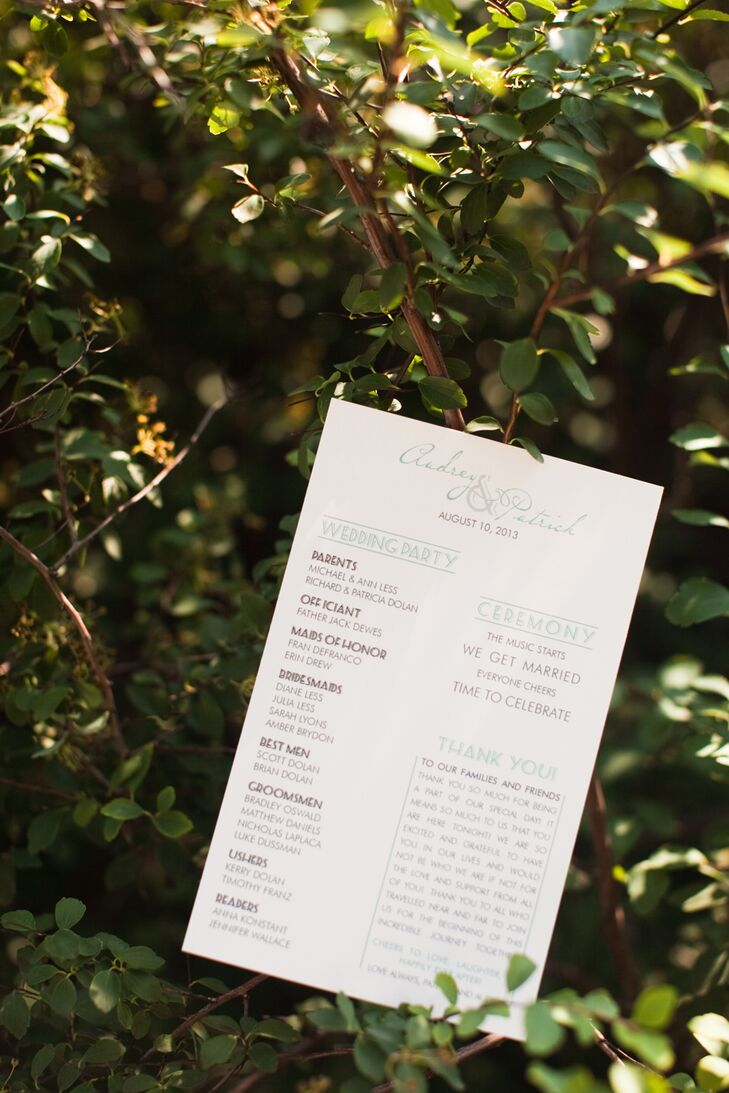 Audrey & Patrick
AUGUST 10, 2013
WEDDING PARTY
PARENTS
MICHAEL & ANN LESS
RICHARD & PATRICIA DOLAN
OFFICIANT
FATHER JACK DEWES
MAIDS OF HONOR
FRAN DEFRANCO
ERIN DREW
BRIDESMAIDS
DIANE LESS
JULIA LESS
SARAH LYONS
AMBER BRYDON
BEST MEN
SCOTT DOLAN
BRIAN DOLAN
GROOMSMEN
BRADLEY OSWALD
MATTHEW DANIELS
NICHOLAS LAPLACA
LUKE DUSSMAN
USHERS
KERRY DOLAN
TIMOTHY FRANZ
READERS
ANNA KONSTANT
JENNIFER WALLACE
CEREMONY
THE MUSIC STARTS
WE GET MARRIED
EVERYONE CHEERS
TIME TO CELEBRATE
THANK YOU!
TO OUR FAMILIES AND FRIENDS
THANK YOU SO MUCH FOR BEING
A PART OF OUR SPECIAL DAY! IT
MEANS SO MUCH TO US THAT YOU
ARE HERE TONIGHT! WE ARE SO
EXCITED AND GRATEFUL TO HAVE
YOU IN OUR LIVES AND WOULD
NOT BE WHO WE ARE IF NOT FOR
THE LOVE AND SUPPORT FROM ALL
OF YOU! THANK YOU TO ALL WHO
TRAVELLED NEAR AND FAR TO JOIN
US FOR THE BEGINNING OF THIS
INCREDIBLE JOURNEY TOGETHER
CHEERS TO LOVE, LAUGHTER,
HAPPILY EVER AFTER!
LOVE ALWAYS,